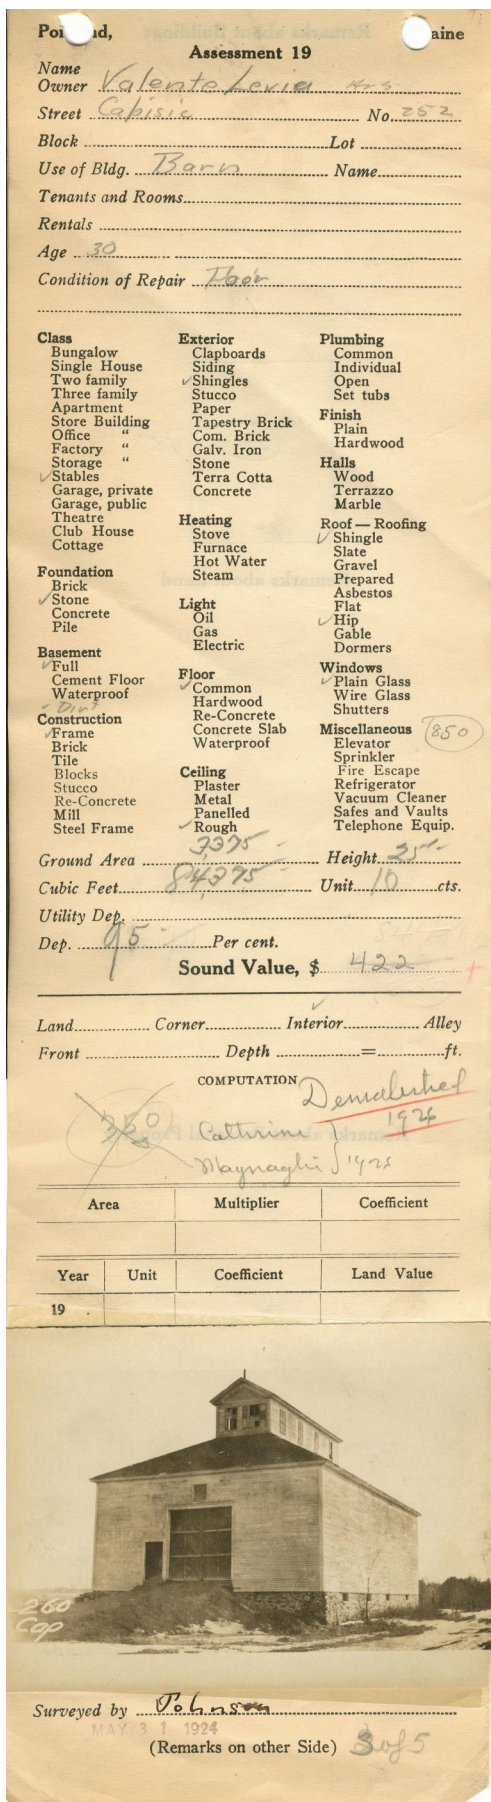 Portland, Maine
Assessment 19
Name
Owner Valente Levia Hrs
Street Capisic No. 252
Block Lot
Use of Bldg. Barn Name
Tenants and Rooms
Rentals
Age 30
Condition of Repair Poor
Class
Bungalow
Single House
Two family
Three family
Apartment
Store Building
Office "
Factory "
Storage "
✓Stables
Garage, private
Garage, public
Theatre
Club House
Cottage
Foundation
Brick
✓Stone
Concrete
Pile
Basement
✓Full
Cement Floor
Waterproof
- Dirt
Construction
✓Frame
Brick
Tile
Blocks
Stucco
Re-Concrete
Mill
Steel Frame
Exterior
Clapboards
Siding
✓Shingles
Stucco
Paper
Tapestry Brick
Com. Brick
Galv. Iron
Stone
Terra Cotta
Concrete
Heating
Stove
Furnace
Hot Water
Steam
Light
Oil
Gas
Electric
Floor
✓Common
Hardwood
Re-Concrete
Concrete Slab
Waterproof
Ceiling
Plaster
Metal
Panelled
✓Rough
Plumbing
Common
Individual
Open
Set tubs
Finish
Plain
Hardwood
Halls
Wood
Terrazzo
Marble
Roof — Roofing
✓Shingle
Slate
Gravel
Prepared
Asbestos
Flat
✓Hip
Gable
Dormers
Windows
✓Plain Glass
Wire Glass
Shutters
Miscellaneous 850
Elevator
Sprinkler
Fire Escape
Refrigerator
Vacuum Cleaner
Safes and Vaults
Telephone Equip.
Ground Area 3375 Height 25
Cubic Feet 84,375 Unit 10 cts.
Utility Dep.
Dep. 95 Per cent.
Sound Value, $ 422
Land Corner Interior ✓ Alley
Front Depth = ft.
COMPUTATION
Demolished
1926
350
Cathrine
Maynaghi } 1925
Area Multiplier Coefficient
Year Unit Coefficient Land Value
19
260
Cap
Surveyed by Johnson
MAY 31 1924
(Remarks on other Side) 3 of 5